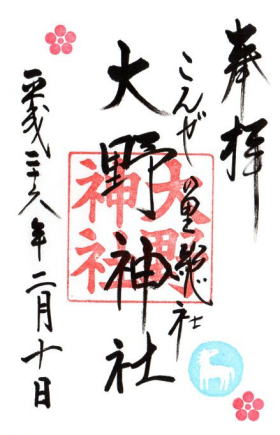 奉拝
こんぜの里総社
大野神社
大野神社
平成二十六年二月十日